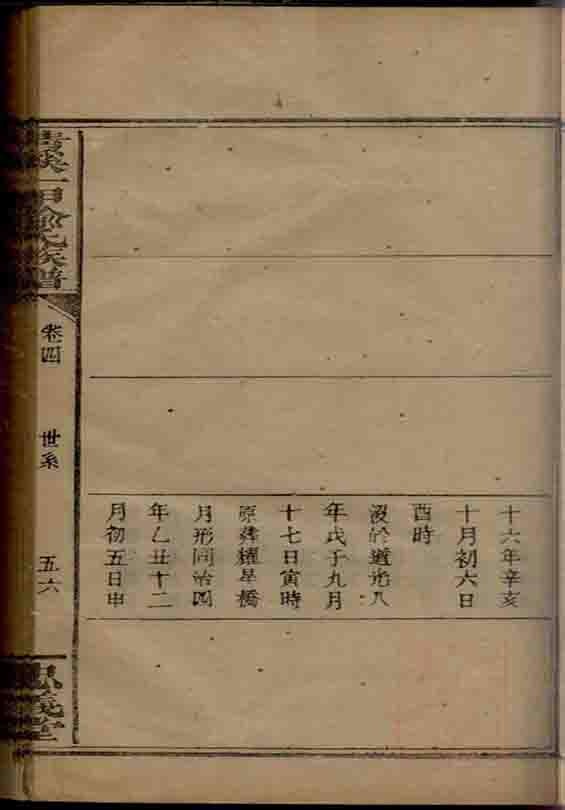 十六年辛亥
十月初六日
酉時
歿於道光八
年戊子九月
十七日寅時
原葬耀星橋
月形同治四
年乙丑十二
月初五日申
氏族譜
卷四
世系
五六
義堂